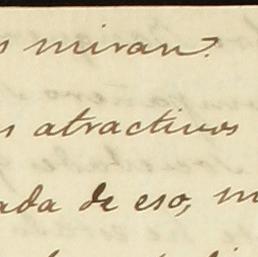 s miran?
s atractivos
ada de eso, m